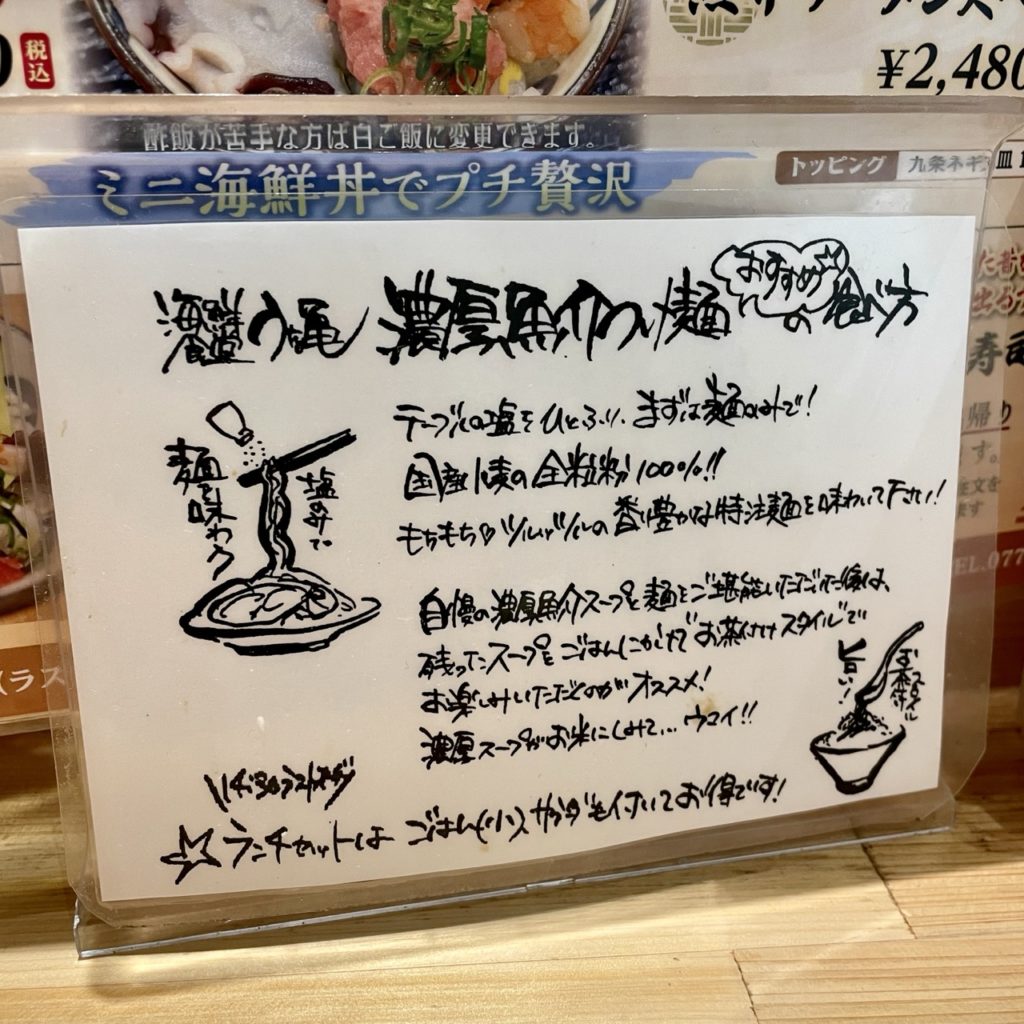 税込
¥2,480
酢飯が苦手な方は白ご飯に変更できます。
ミニ海鮮丼でプチ贅沢
トッピング 九条ネギ
海鮮食堂 うを亀 濃厚魚介つけ麺 おすすめの食べ方
テーブルの塩をひとふり、まずは麺のみで!
国産小麦の全粒粉100%!!
もちもち♡ツルッツルの香り豊かな特注麺を味わって下さい!
塩のみで
麺を味わう
自慢の濃厚魚介スープと麺をご堪能いただいた後は、
残ったスープをごはんにかけてお茶付けスタイルで
お楽しみいただくのがオススメ!
濃厚スープがお米にしみて… ウマイ!!
お茶付けスタイル
旨い!
☆ランチセットは ごはん(小)、サラダも付いてお得です!
寿司
す。
TEL.077
(ラス